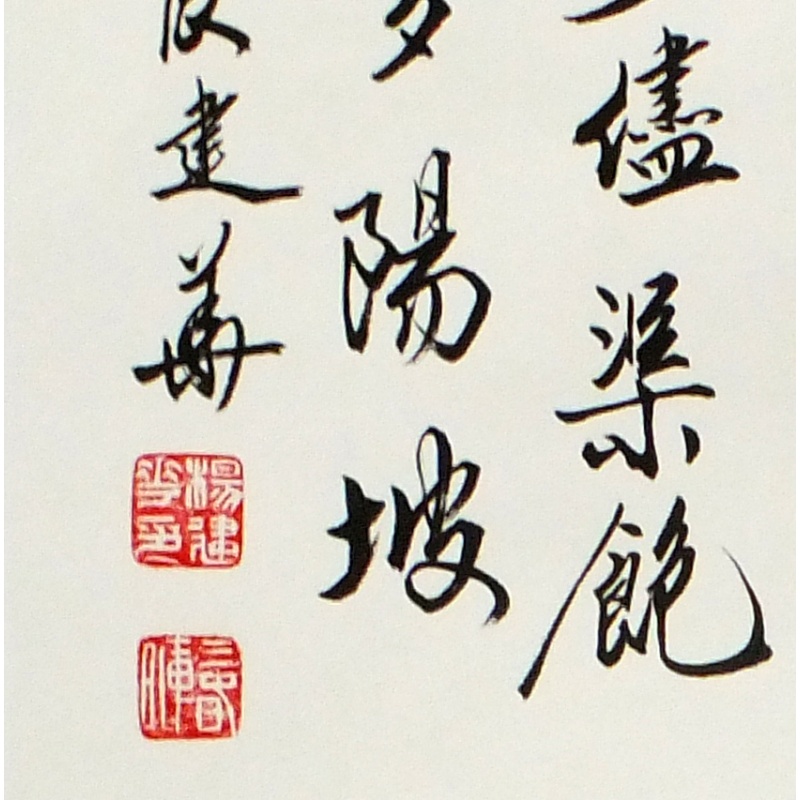 儘渠飽
夕陽坡
建華
楊建華印